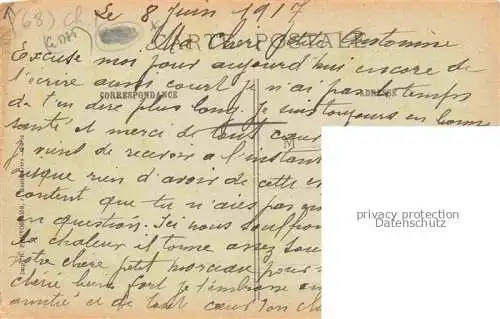 Le 8 Juin 1917
(68)
CARTE POSTALE
Ma Chère petite Antonine
Excuse moi pour aujourd'hui encore de
t'écrire aussi court je n'ai pas le temps
CORRESPONDANCE
ADRESSE
de t'en dire plus long. Je suis toujours en bonne
santé et merci de tout cœur
je vient de recevoir a l'instant
presque rien d'avoir de cette
content que tu n'ais pas
en question. Ici nous souffrons
la chaleur il tonne assez
notre chère petit morceau pour
chérie bien fort je t'embrasse
amitié et de tout cœur ton
privacy protection
Datenschutz